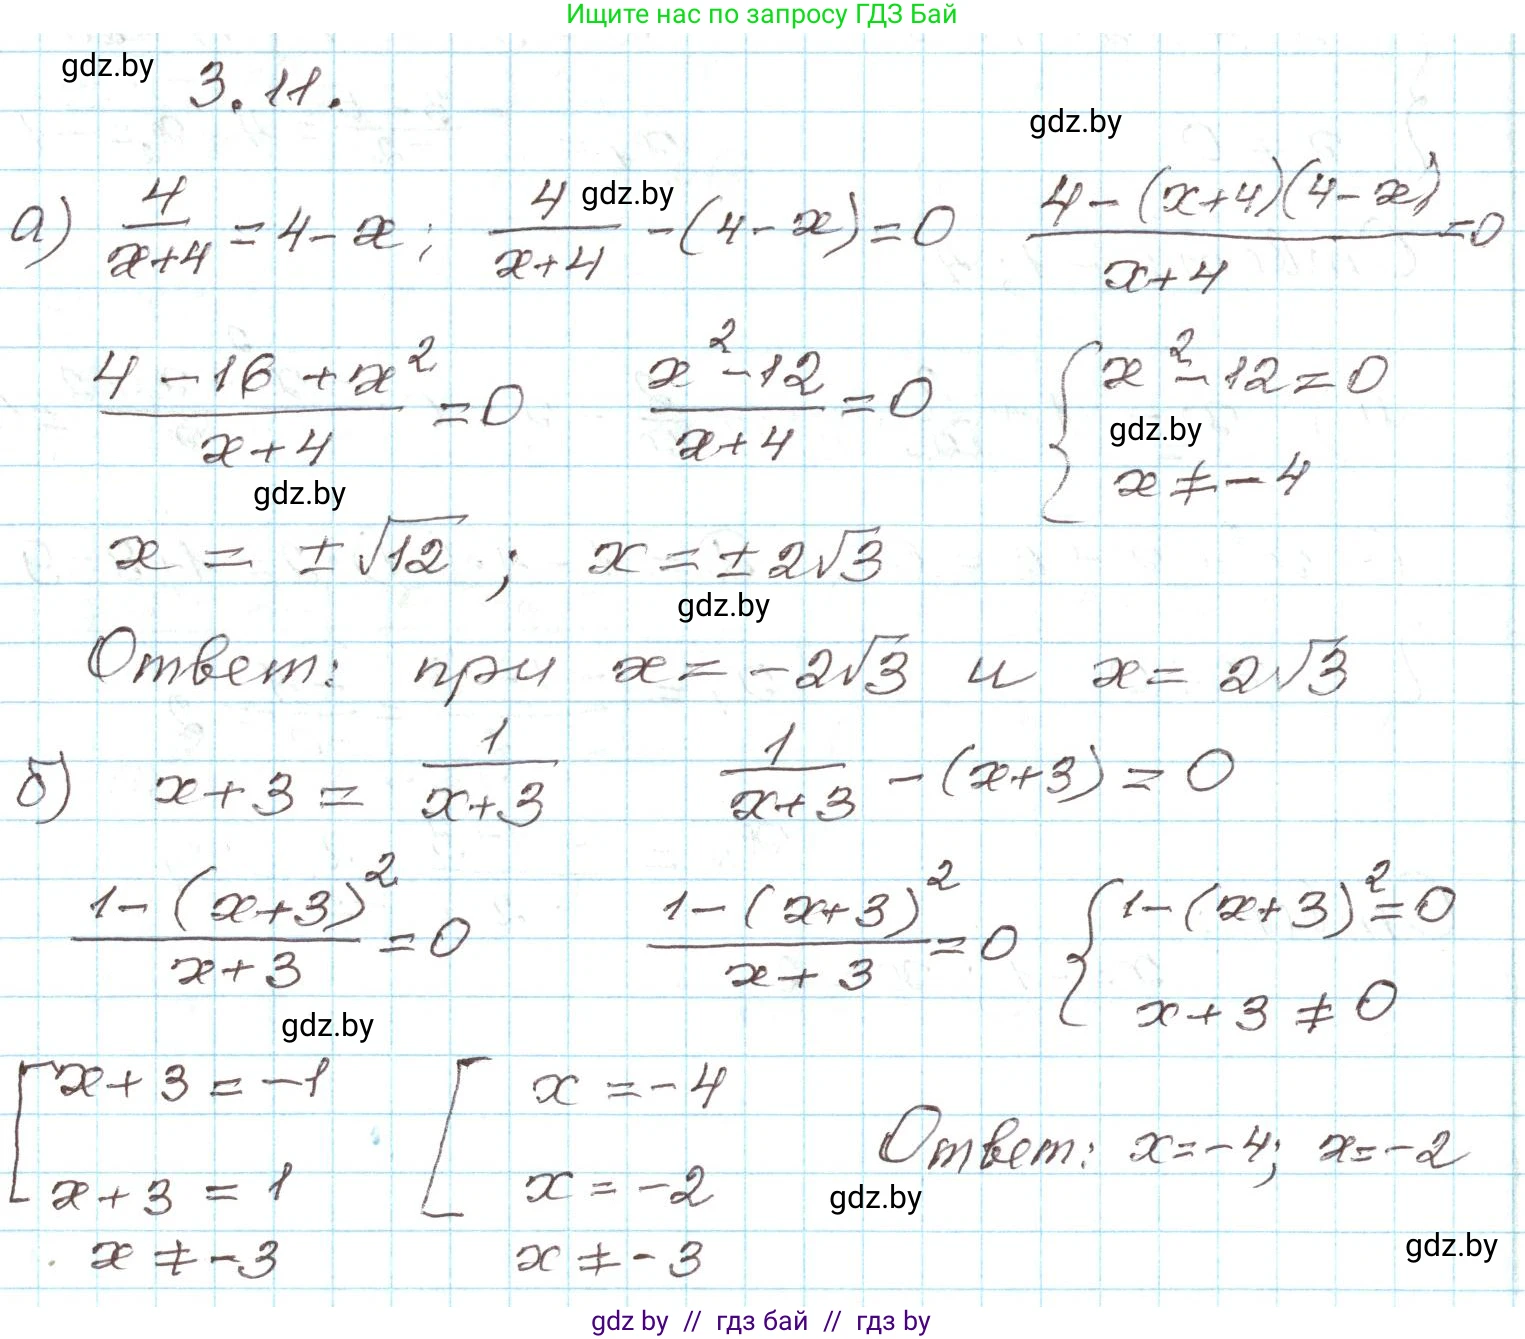 Ищите нас по запросу ГДЗ Бай
gdz.by 3.11.
gdz.by
а) 4/(x+4) = 4-x; 4/(x+4) - (4-x) = 0 (4-(x+4)(4-x))/(x+4) = 0
gdz.by
(4-16+x²)/(x+4) = 0 (x²-12)/(x+4) = 0 { x²-12=0
gdz.by
x ≠ -4
gdz.by
x = ±√12; x = ±2√3
gdz.by
Ответ: при x = -2√3 и x = 2√3
б) x+3 = 1/(x+3) 1/(x+3) - (x+3) = 0
(1-(x+3)²)/(x+3) = 0 (1-(x+3)²)/(x+3) = 0 { 1-(x+3)²=0
x+3 ≠ 0
gdz.by
[ x+3=-1 [ x=-4
Ответ: x=-4; x=-2
x+3=1 x=-2
gdz.by
x ≠ -3 x ≠ -3
gdz.by
gdz by // гдз бай // гдз by